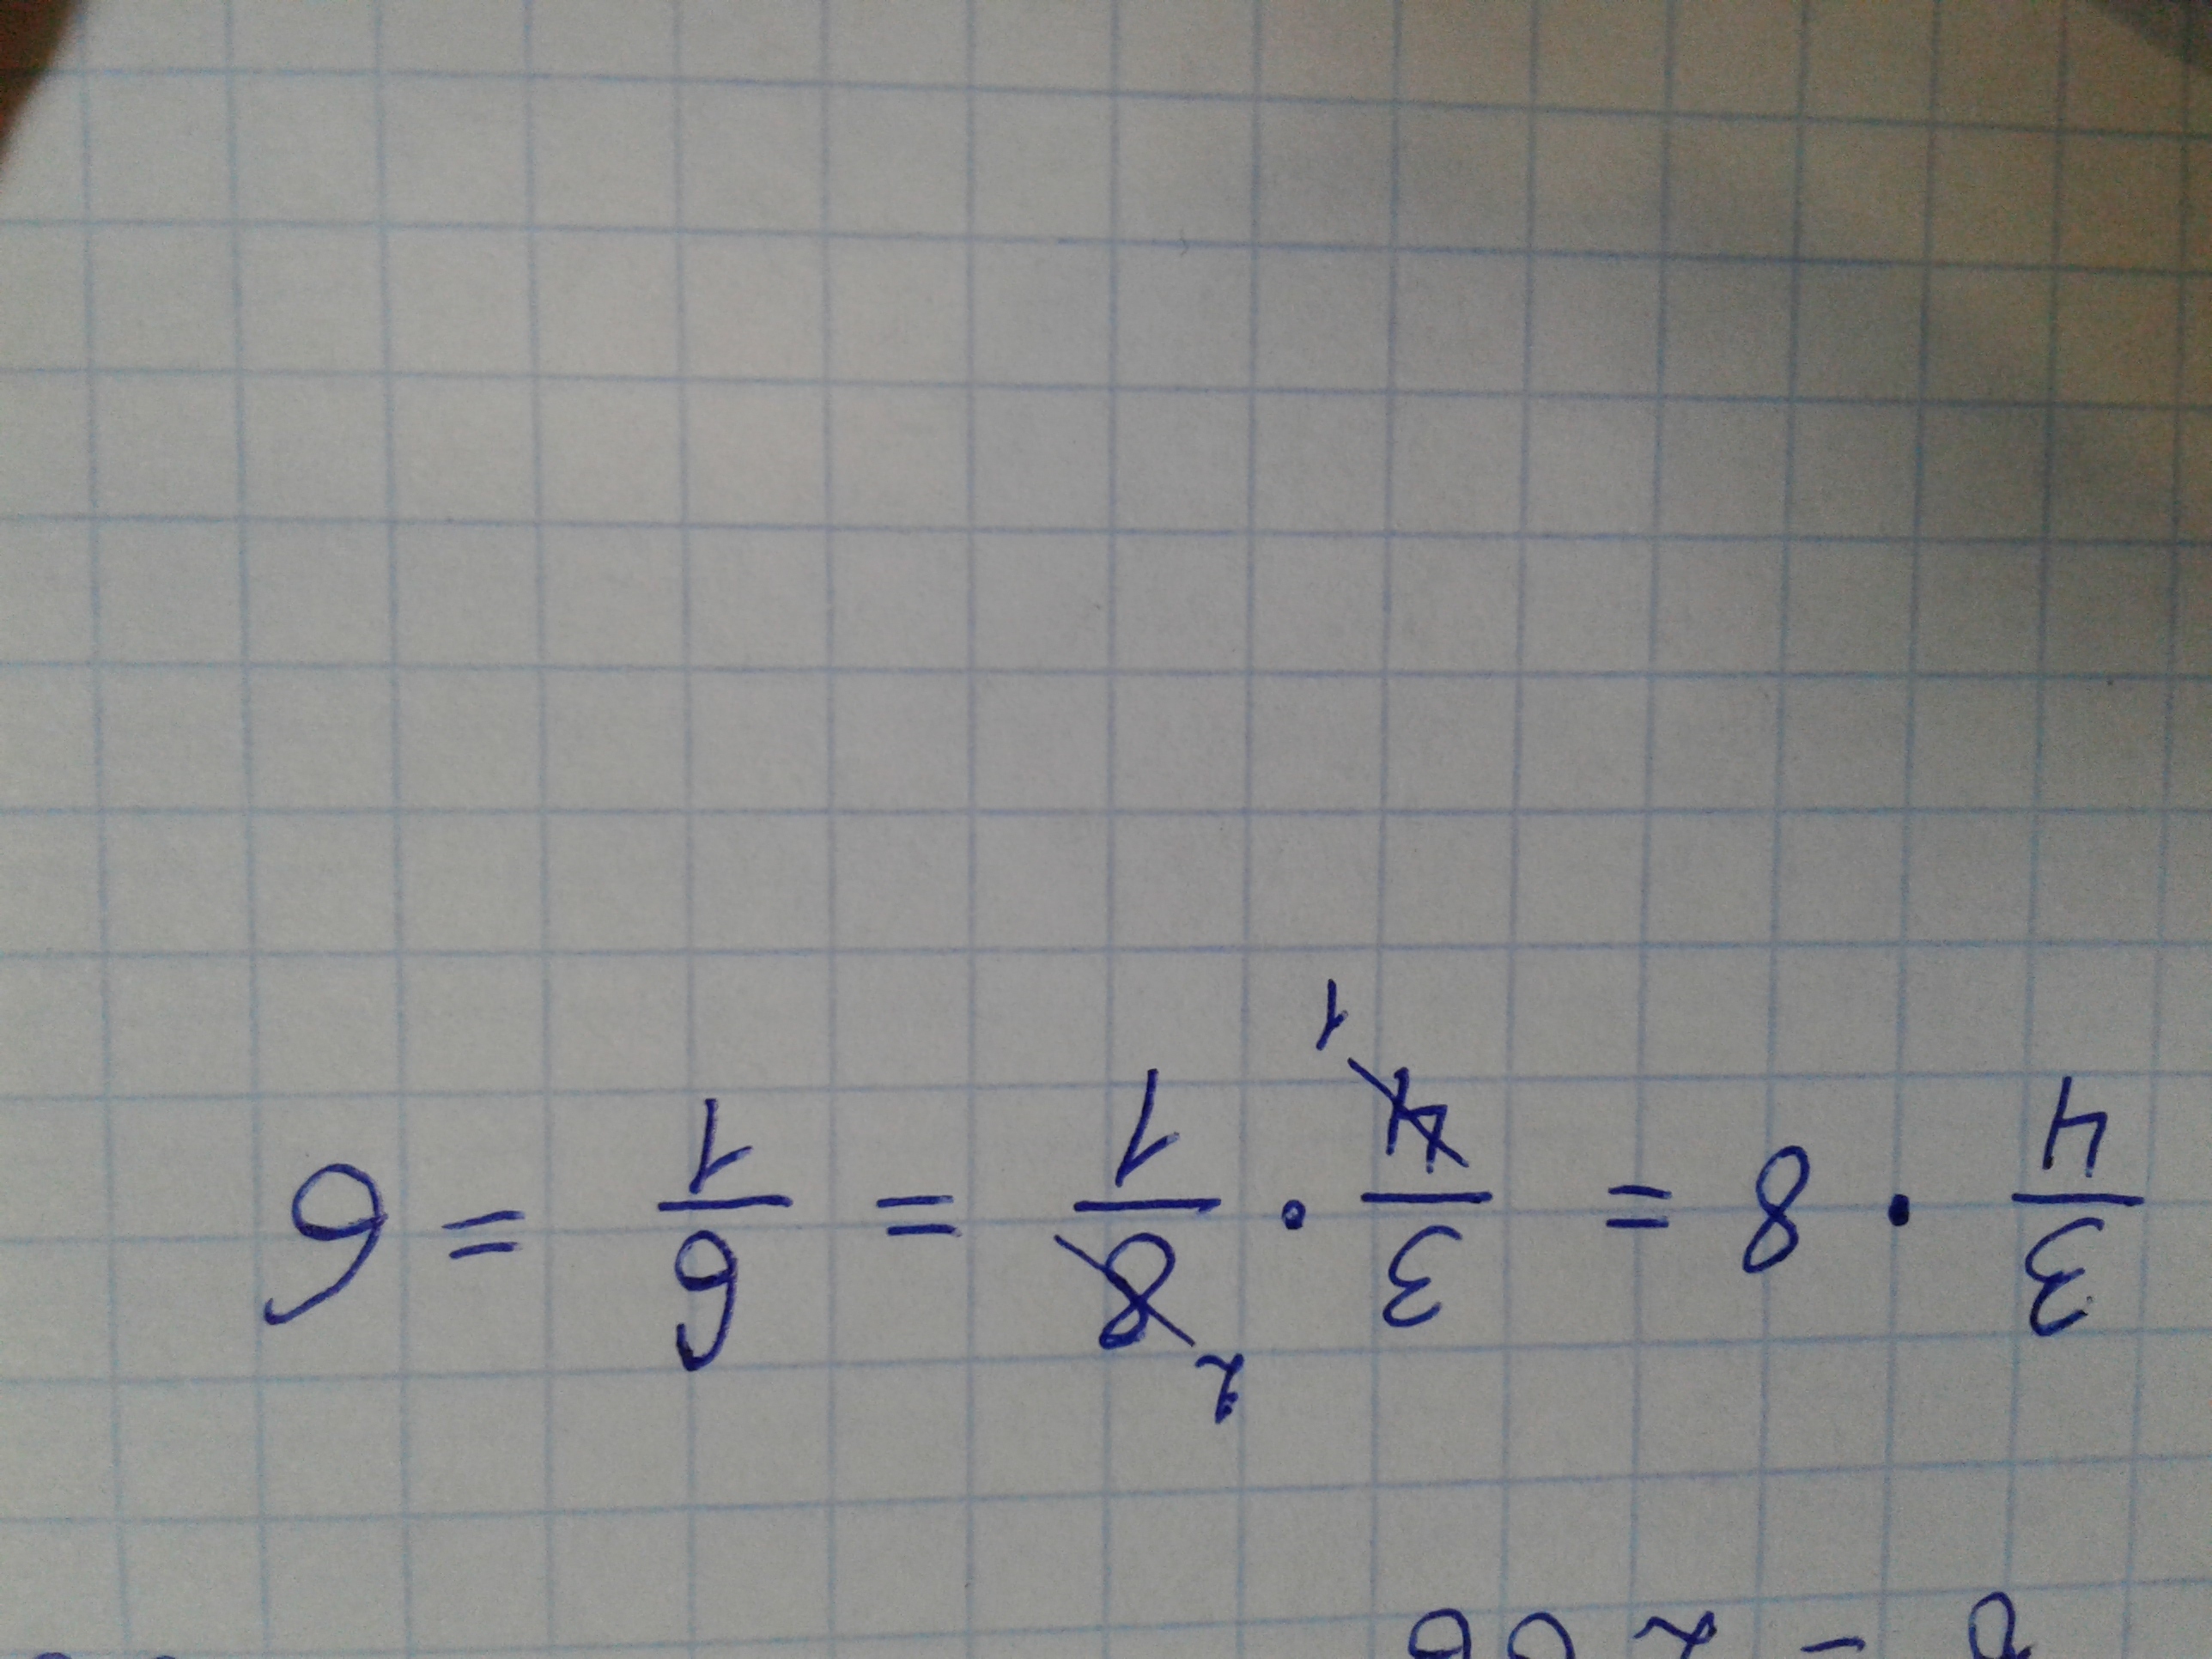 3/4 · 8 = 3/4 1 · 8 2/1 = 6/1 = 6